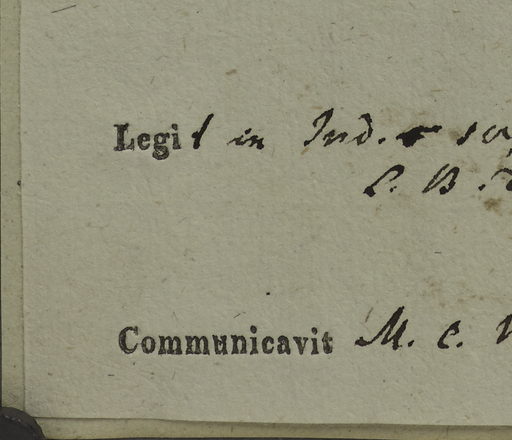 Legit in Ind. or
L. B.
Communicavit M. C.